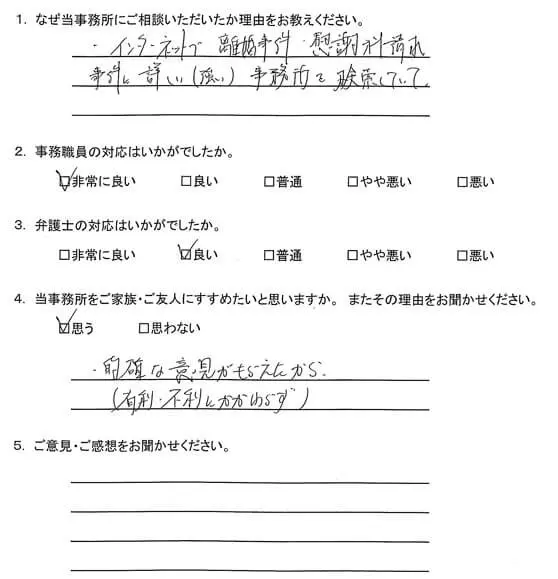 1. なぜ当事務所にご相談いただいたか理由をお教えください。
・インターネットで 離婚事件・慰謝料請求
事件に詳しい(強い)事務所を検索していて
2. 事務職員の対応はいかがでしたか。
☑非常に良い □良い □普通 □やや悪い □悪い
3. 弁護士の対応はいかがでしたか。
□非常に良い ☑良い □普通 □やや悪い □悪い
4. 当事務所をご家族・ご友人にすすめたいと思いますか。 またその理由をお聞かせください。
☑思う □思わない
・的確な意見がもらえたから.
(有利・不利にかかわらず)
5. ご意見・ご感想をお聞かせください。